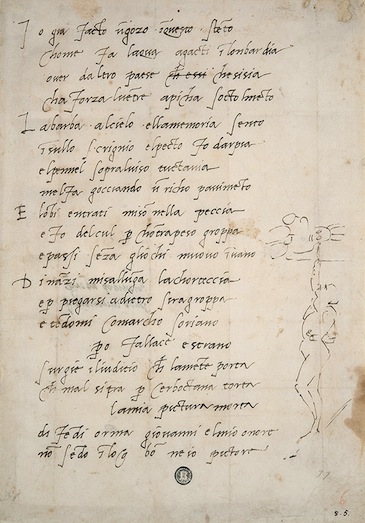 I o gia facto ūgozo īquesto stēto
chome fa lacqua agacti ī lombardia
over daltro paese ch essi chesisia
cha forza lvētre apicha socto lmēto
La barba alcielo ellamemoria sento
īsullo scrignio elpecto fo darpia
elpennel sopraluiso tuctavia
melfa gocciando ū richo pauimēto
E lobi entrati miso nella peccia
e fo delcul p chotrapeso groppa
e passi seza gliochi muovo īuano
Dināzi misalluga lachorteccia
e p piegarsi adietro siragroppa
e tēdomi comarcho soriano
po fallace e strano
surgie iliuditio ch lamēte porta
ch mal sipra p cerboctana torta
lamia pictura morta
di fedi orma giovanni elmio onore
nō sēdo ī loq bō ne io pictore
8.5.